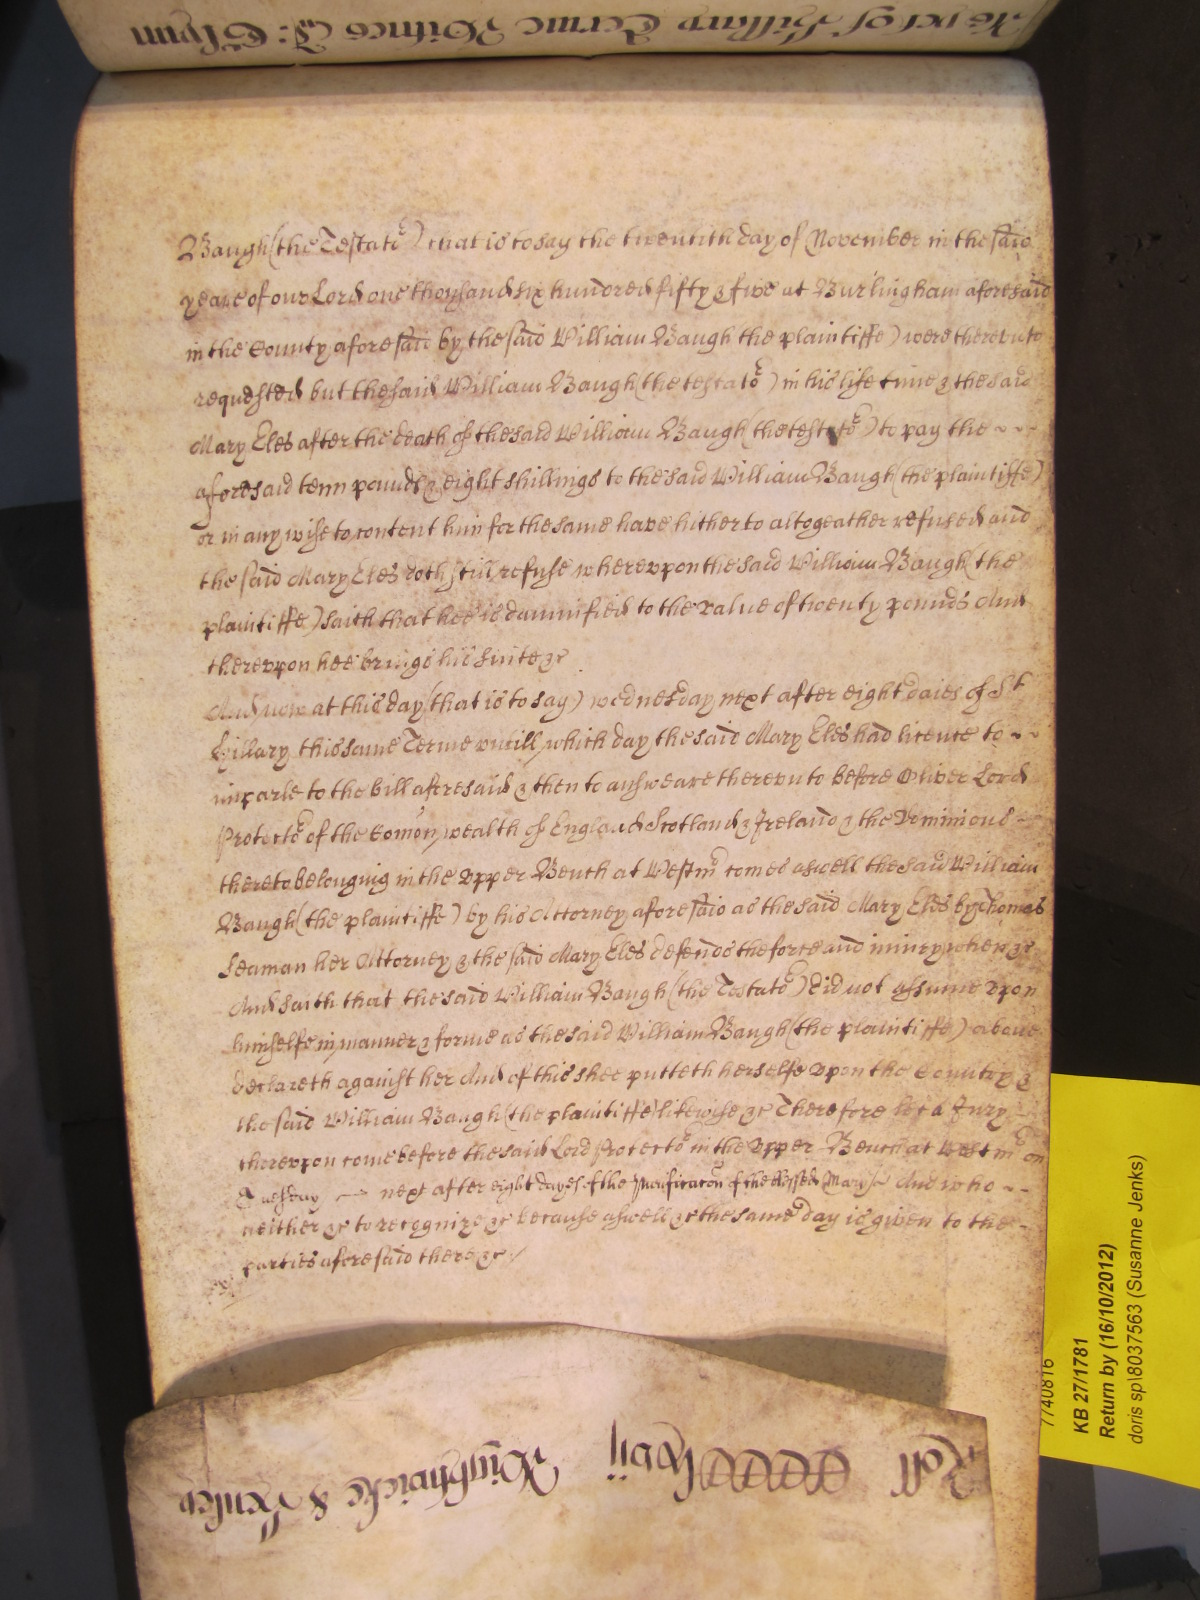 As yet of Hillary Terme Witnes J: Glynn
Baugh (the Testator) that is to say the twentith day of November in the said
yeare of our Lord one thousand six hundred fifty & five at Burlingham aforesaid
in the County aforesaid by the said William Baugh the plaintiffe) were therevnto
requested but the said William Baugh (the testator) in his life time & the said
Mary Eles after the death of the said William Baugh (the testator) to pay the
aforesaid tenn pounds & eight shillings to the said William Baugh (the plaintiffe)
or in any wise to content him for the same have hitherto altogeather refused and
the said Mary Eles doth still refuse wherevpon the said William Baugh (the
plaintiffe) saith that hee is damnified to the value of twenty pounds And
therevpon hee brings his suite &c
And now at this day (that is to say) wednesday next after eight daies of St
Hillary this same Terme vntill which day the said Mary Eles had licence to
imparle to the bill aforesaid & then to answeare therevnto before Oliver Lord
Protector of the Comon wealth of England Scotland & Ireland & the Dominions
thereto belonging in the vpper Bench at Westmr comes aswell the said William
Baugh (the plaintiffe) by his Attorney aforesaid as the said Mary Eles by Thomas
Seaman her Attorney & the said Mary Eles defends the force and iniury when &c
And saith that the said William Baugh (the Testator) did not assume vpon
himselfe in manner & forme as the said William Baugh (the plaintiffe) above
declareth against her And of this shee putteth herselfe vpon the Country &
the said William Baugh (the plaintiffe) likewise &c Therefore let a Jury
therevpon come before the said Lord Protector in the vpper Bench at Westmr on
Tuesday next after eight dayes of the purificacon of the blessed Mary And who
neither &c to recognize &c because aswell &c the same day is given to the
parties aforesaid there &c
Roll CCCClxvij Wightwicke &
7740816
KB 27/1781
Return by (16/10/2012)
doris sp\8037563 (Susanne Jenks)